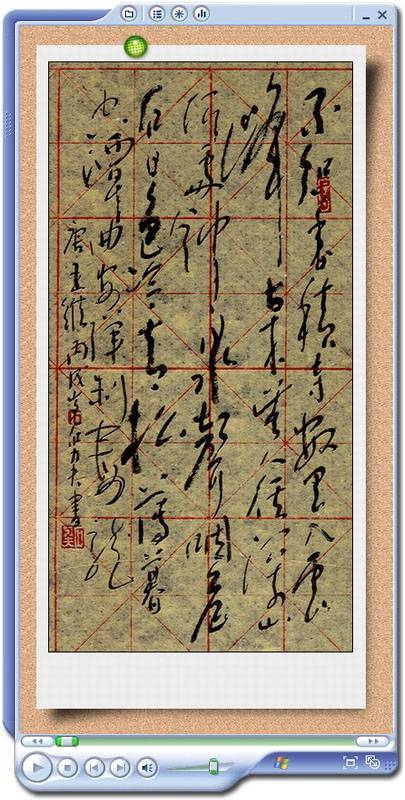 不知香積寺數里入雲
峰古木無人徑深山
何處鐘泉聲咽危
石日色冷青松薄暮
空潭曲安禪制毒龍
唐王維丙戌書